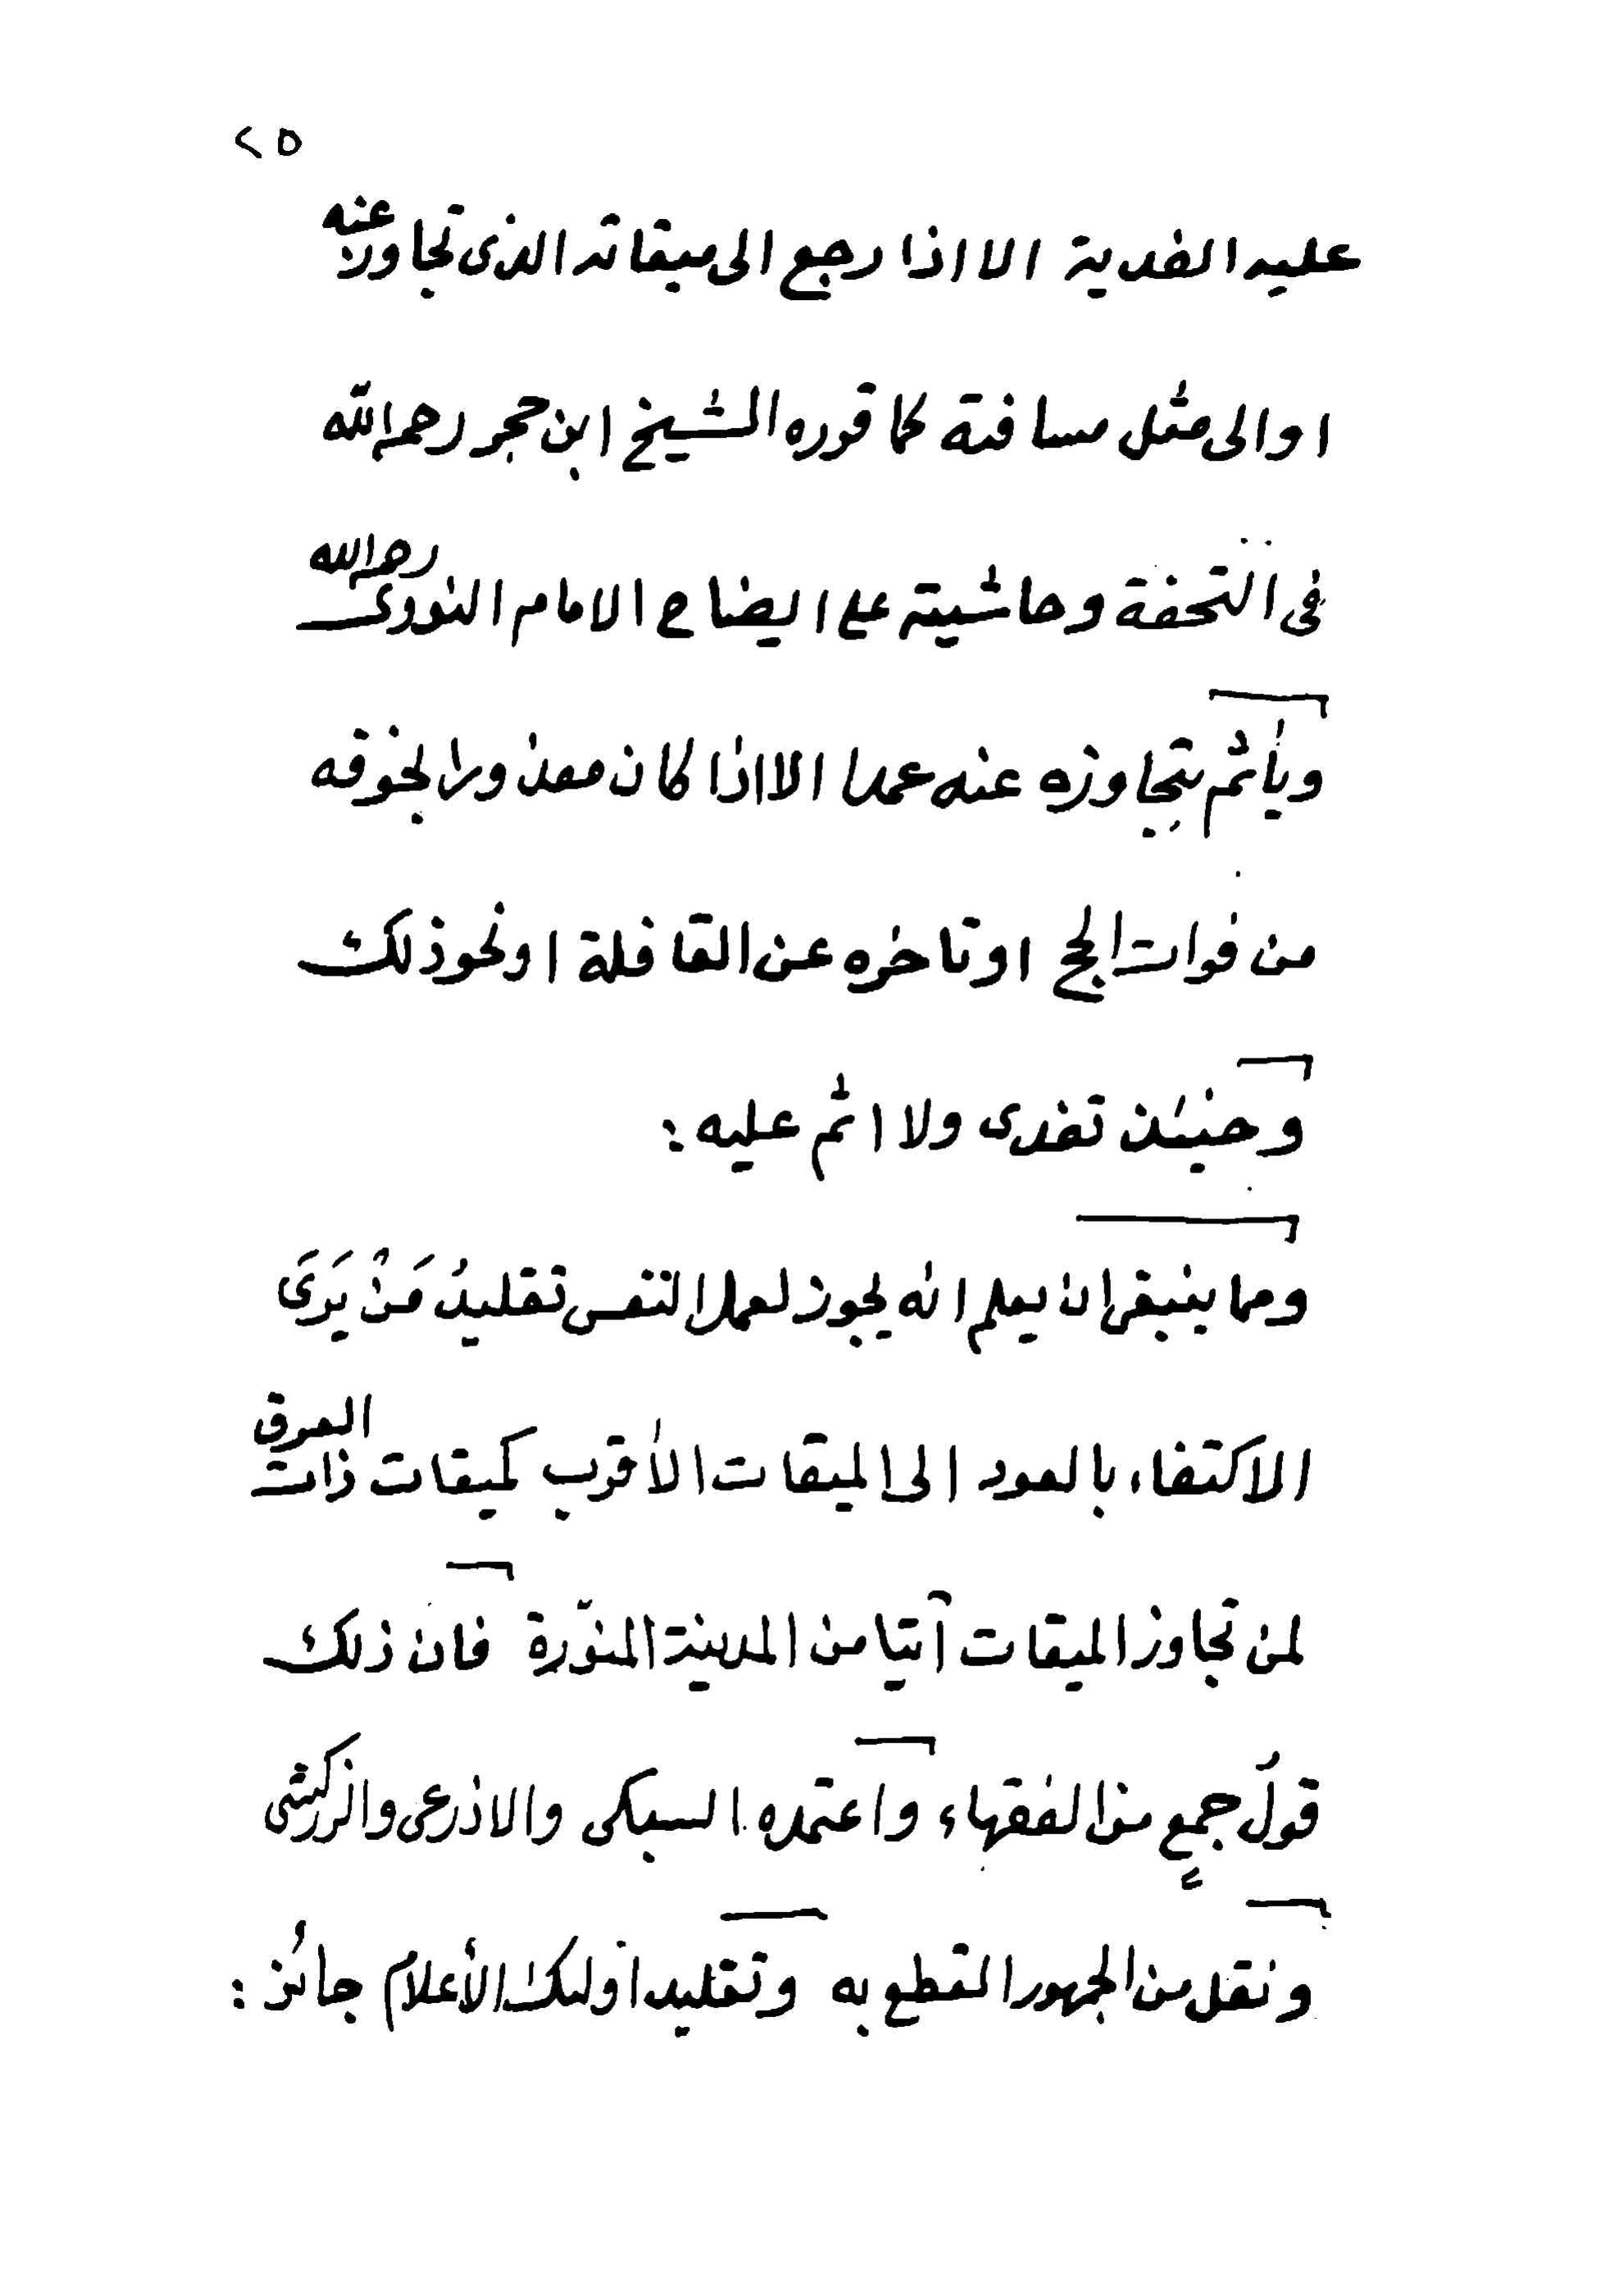 ٢٥
عليه الفدية الا اذا رجع الى ميقاته الذى تجاوز عنه
او الى مثل مسافته كما قرره الشيخ ابن حجر رحمه الله
فى التحفة وحاشيته على ايضاح الامام النووى رحمه الله
ويأثم بتجاوزه عنه عمدا الا اذا كان معذورا لخوفه
من فوات الحج او تاخره عن القافلة او نحو ذلك
وحينئذ تفدى ولا اثم عليه :
ومما ينبغى ان يعلم انه يجوز لعمل النفس تقليدُ مَنْ يَرَى
الاكتفاء بالعود الى الميقات الأقرب كميقات ذات العرق
لمن تجاوز الميقات آتيا من المدينة المنوّرة فان ذلك
قولُ جمعٍ من الفقهاء واعتمده السبكى والاذرعى والزركشى
ونقل من الجمهور القطع به وتقليد اولئك الأعلام جائز :